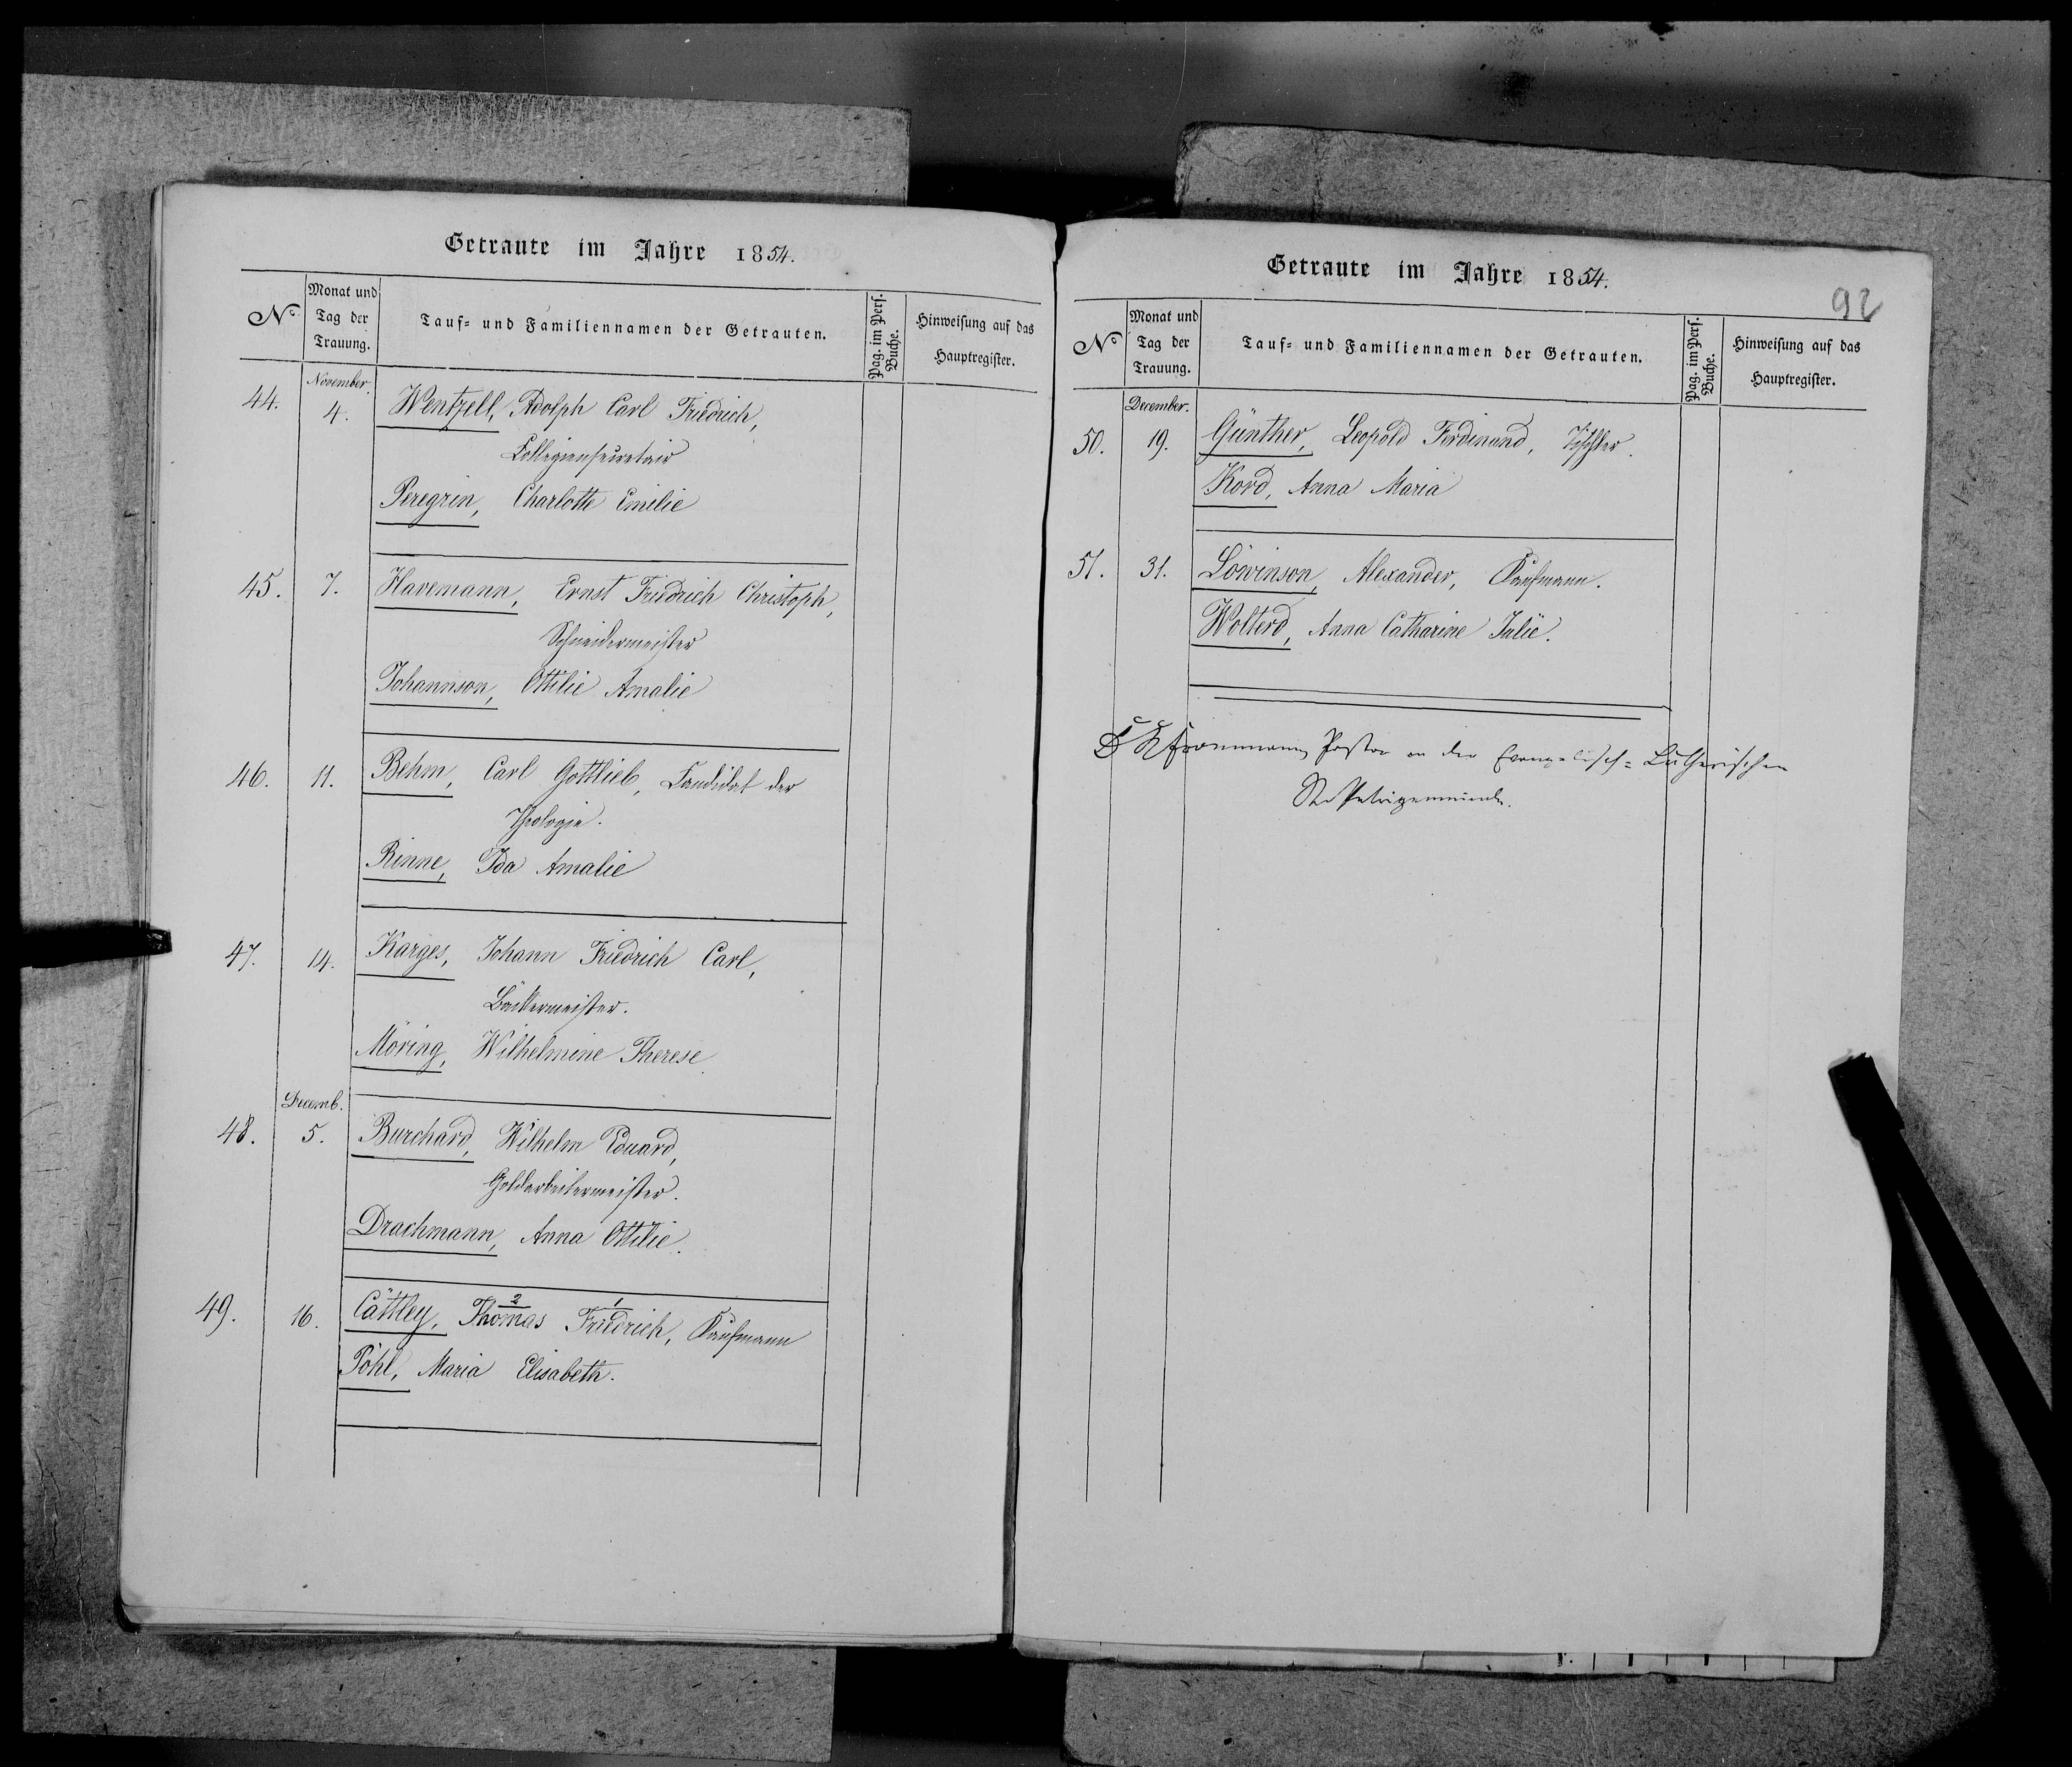 Getraute im Jahre 1854.
No. Monat und Tag der Trauung. Tauf- und Familiennamen der Getrauten. Pag. im Pers. Buche. Hinweisung auf das Hauptregister.
November.
44. 4. Wentzell, Adolph Carl Friedrich,
Collegiensecretair
Peregrin, Charlotte Emilie
45. 7. Havemann, Ernst Friedrich Christoph,
Schneidermeister
Johannson, Ottilie Amalie
46. 11. Behm, Carl Gottlieb, Candidat der
Theologie.
Rinne, Ida Amalie
47. 14. Karges, Johann Friedrich Carl,
Bäckermeister.
Möring, Wilhelmine Therese.
Decemb.
48. 5. Burchard, Wilhelm Eduard,
Goldarbeitermeister.
Drachmann, Anna Ottilie.
2 1
49. 16. Cattley, Thomas Friedrich, Kaufmann
Pöhl, Maria Elisabeth.
Getraute im Jahre 1854.
92
No. Monat und Tag der Trauung. Tauf- und Familiennamen der Getrauten. Pag. im Pers. Buche. Hinweisung auf das Hauptregister.
December.
50. 19. Günther, Leopold Ferdinand, Tischler.
Kord, Anna Maria
51. 31. Löwinson, Alexander, Kaufmann.
Wolterd, Anna Catharine Julie.
Frommann, Pastor an der Evangelisch-Lutherischen
St. Petrigemeinde.